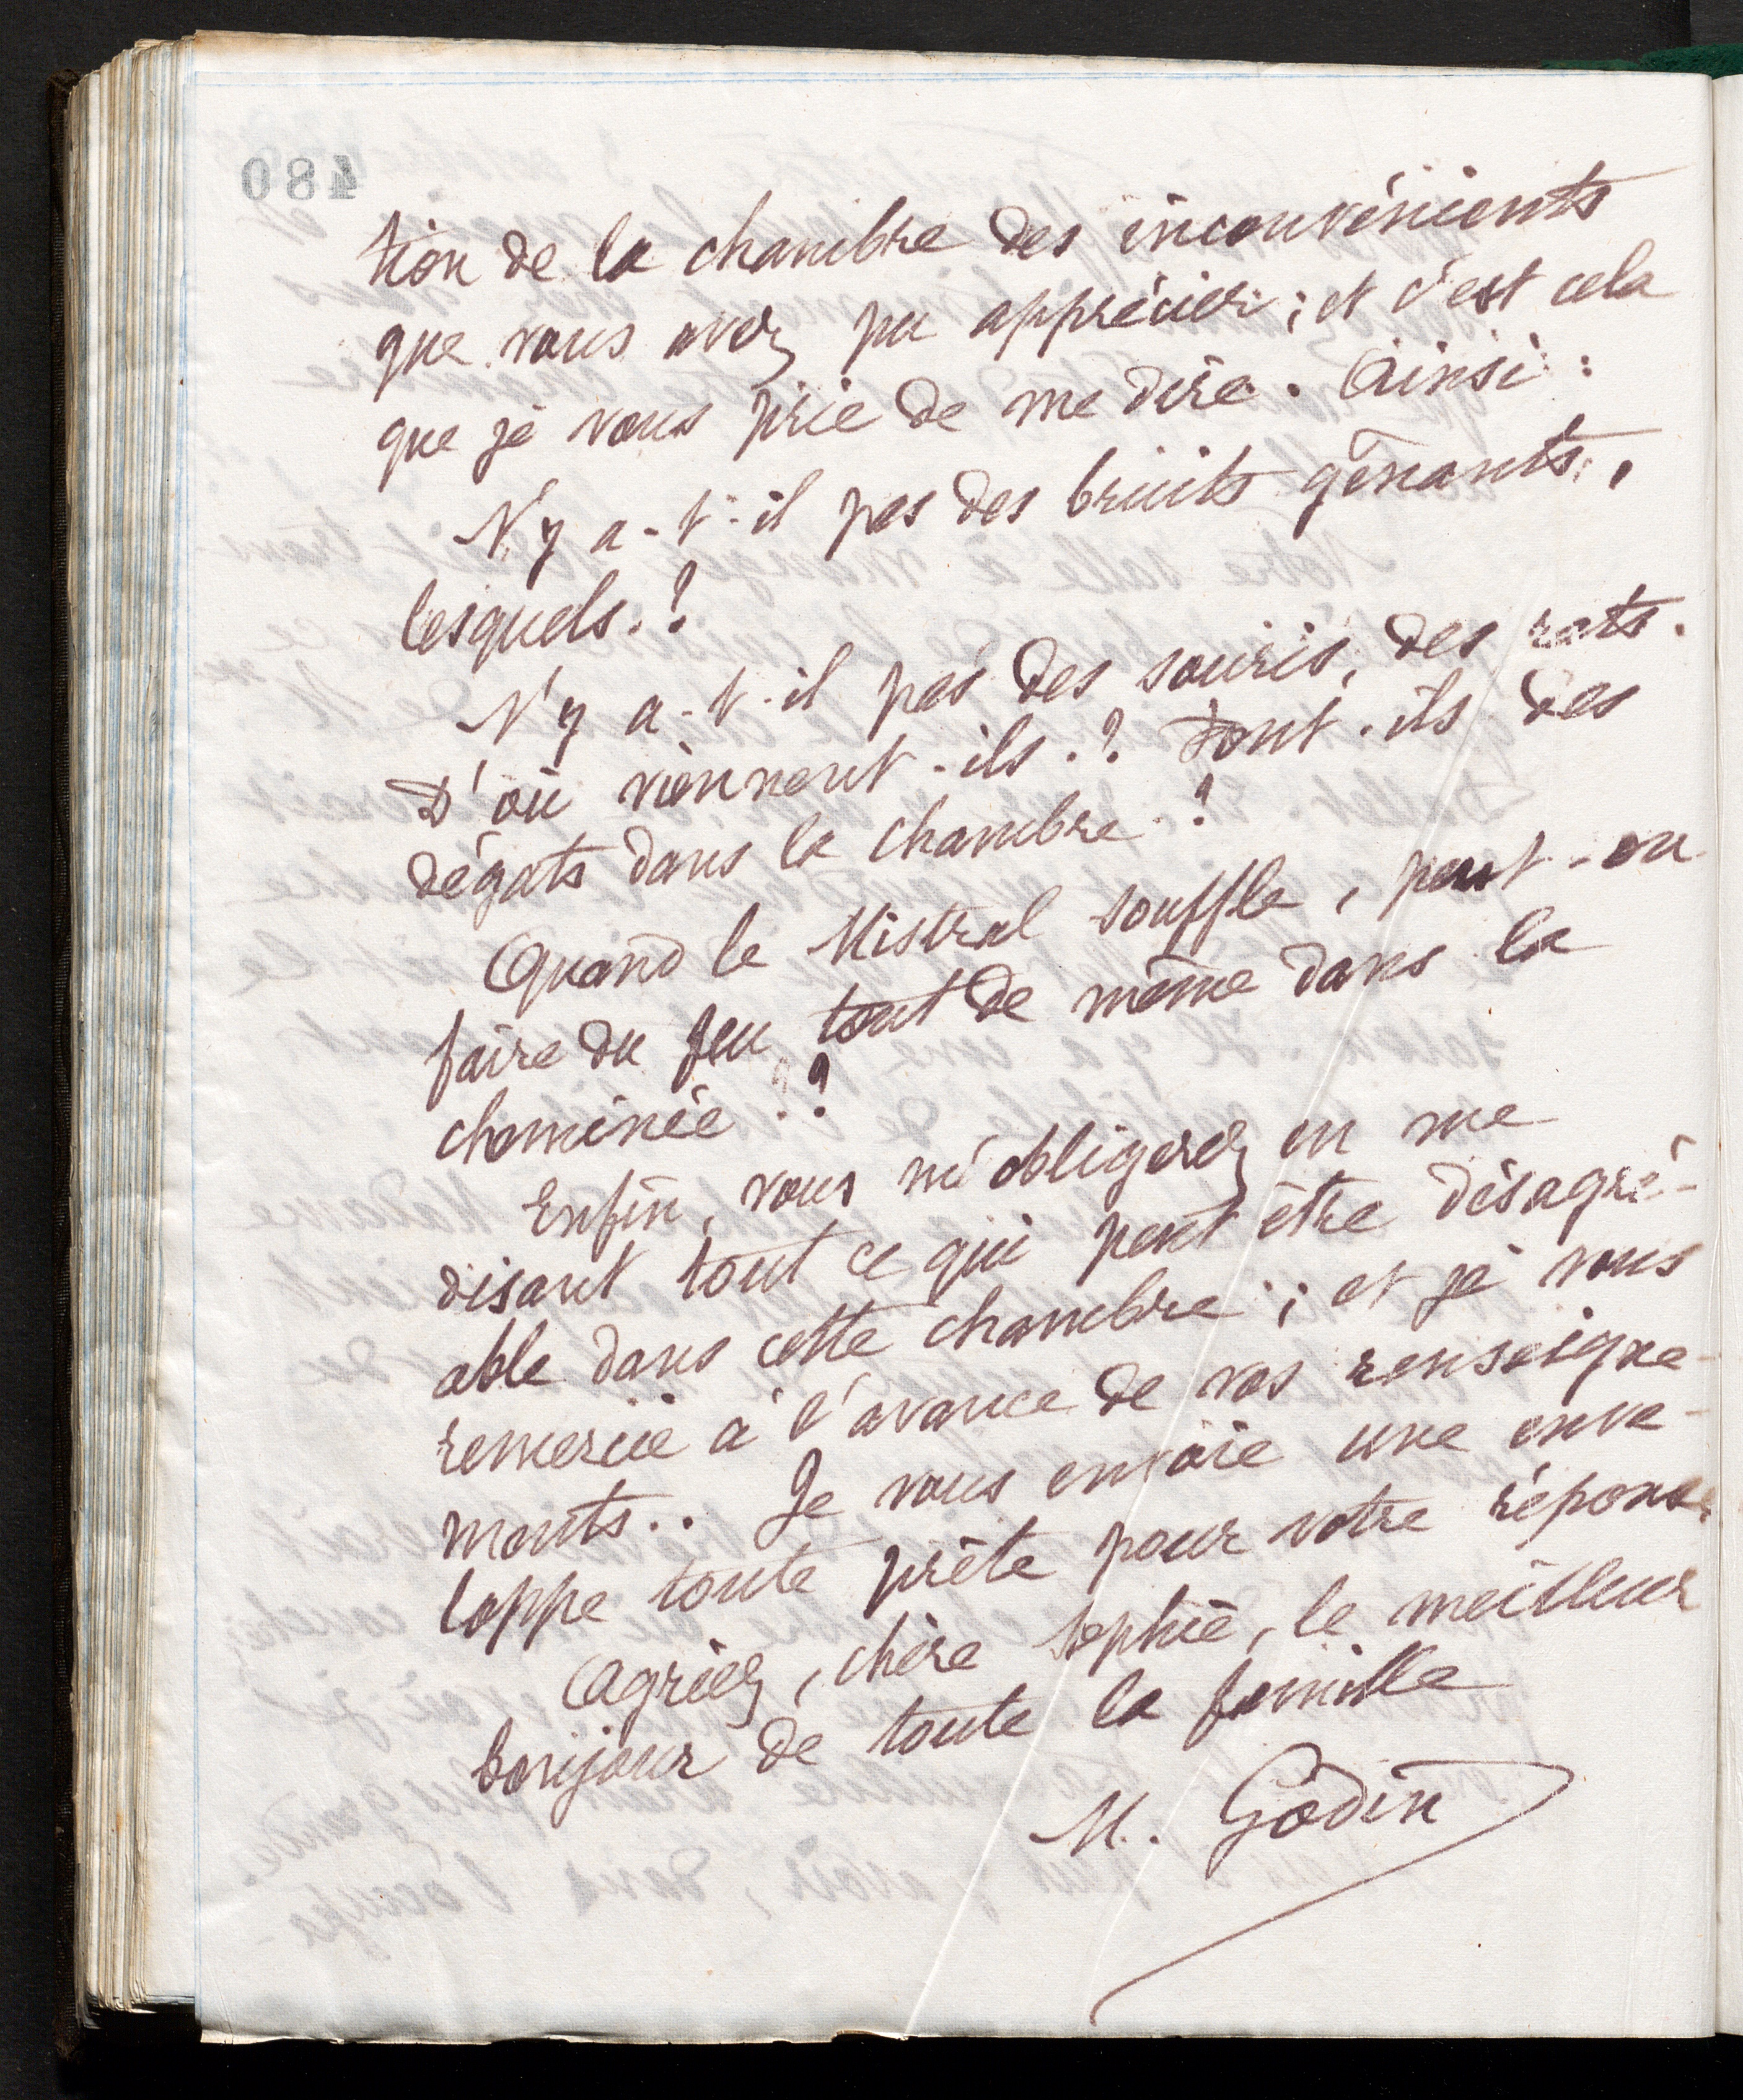 480
tion de la chambre des inconvénients
que vous avez pu apprécier ; et c'est cela
que je vous prie de me dire. Ainsi :
N'y a-t-il pas des bruits gênants,
lesquels. ?
N'y a-t-il pas des souris, des rats.
D'où viennent-ils. ? Font-ils des
dégats dans la chambre ?
Quand le Mistral souffle, peut-on
faire du feu tout de même dans la
cheminée ??
Enfin, vous m'obligerez en me
disant tout ce qui peut être désagré-
able dans cette chambre ; et je vous
remercie à l'avance de vos renseigne-
ments.. Je vous envoie une enve-
loppe toute prête pour votre réponse.
Agréez, chère Sophie, le meilleur
bonjour de toute la famille
M. Godin